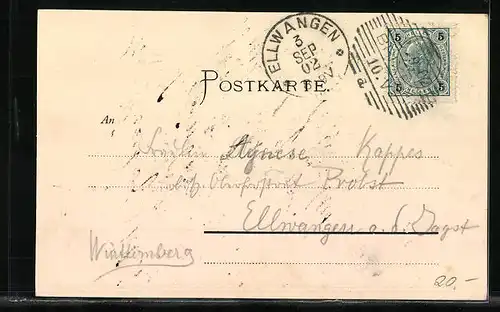 ELLWANGEN
5 5
5 5
POSTKARTE.
An
Fräulein Agnese Kappes
Probst
Ellwangen a. d. Jagst
Württemberg
20.-